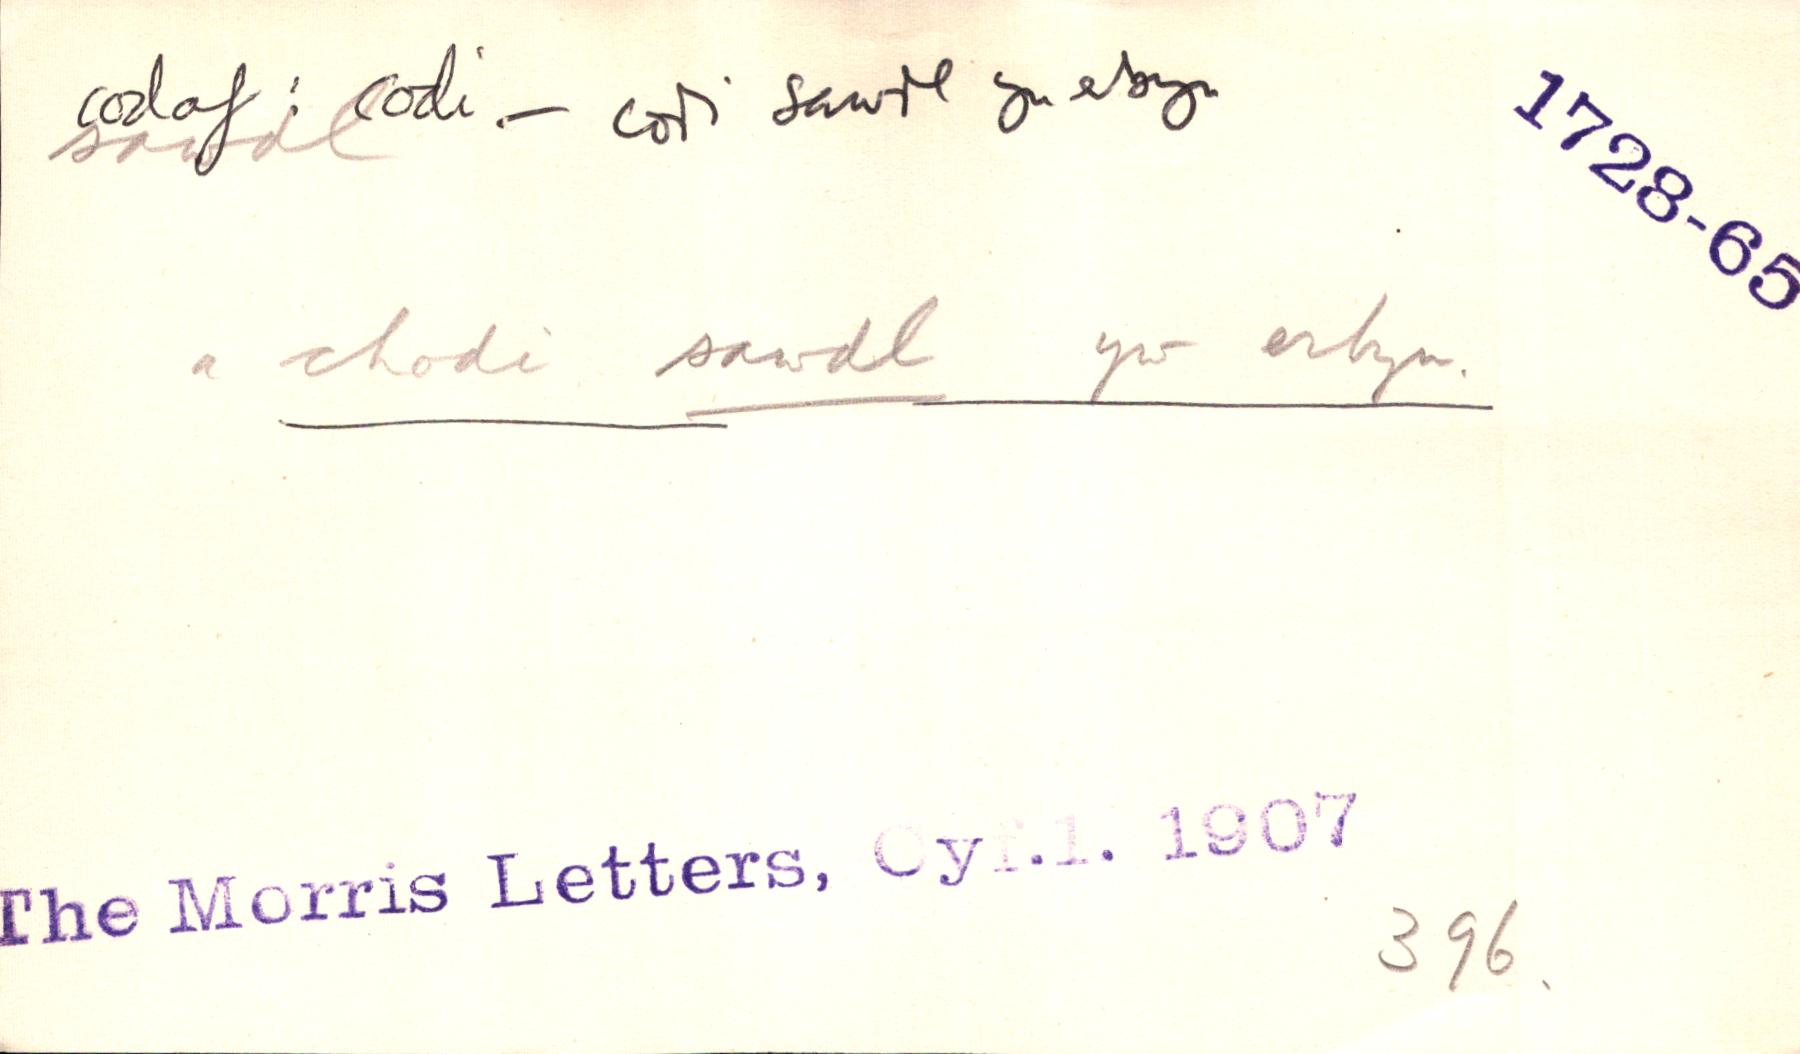 codaf: codi. – codi sawdl yn erbyn
sawdl
1728-65
a chodi sawdl yw erbyn.
The Morris Letters, Cyf.1. 1907
396.